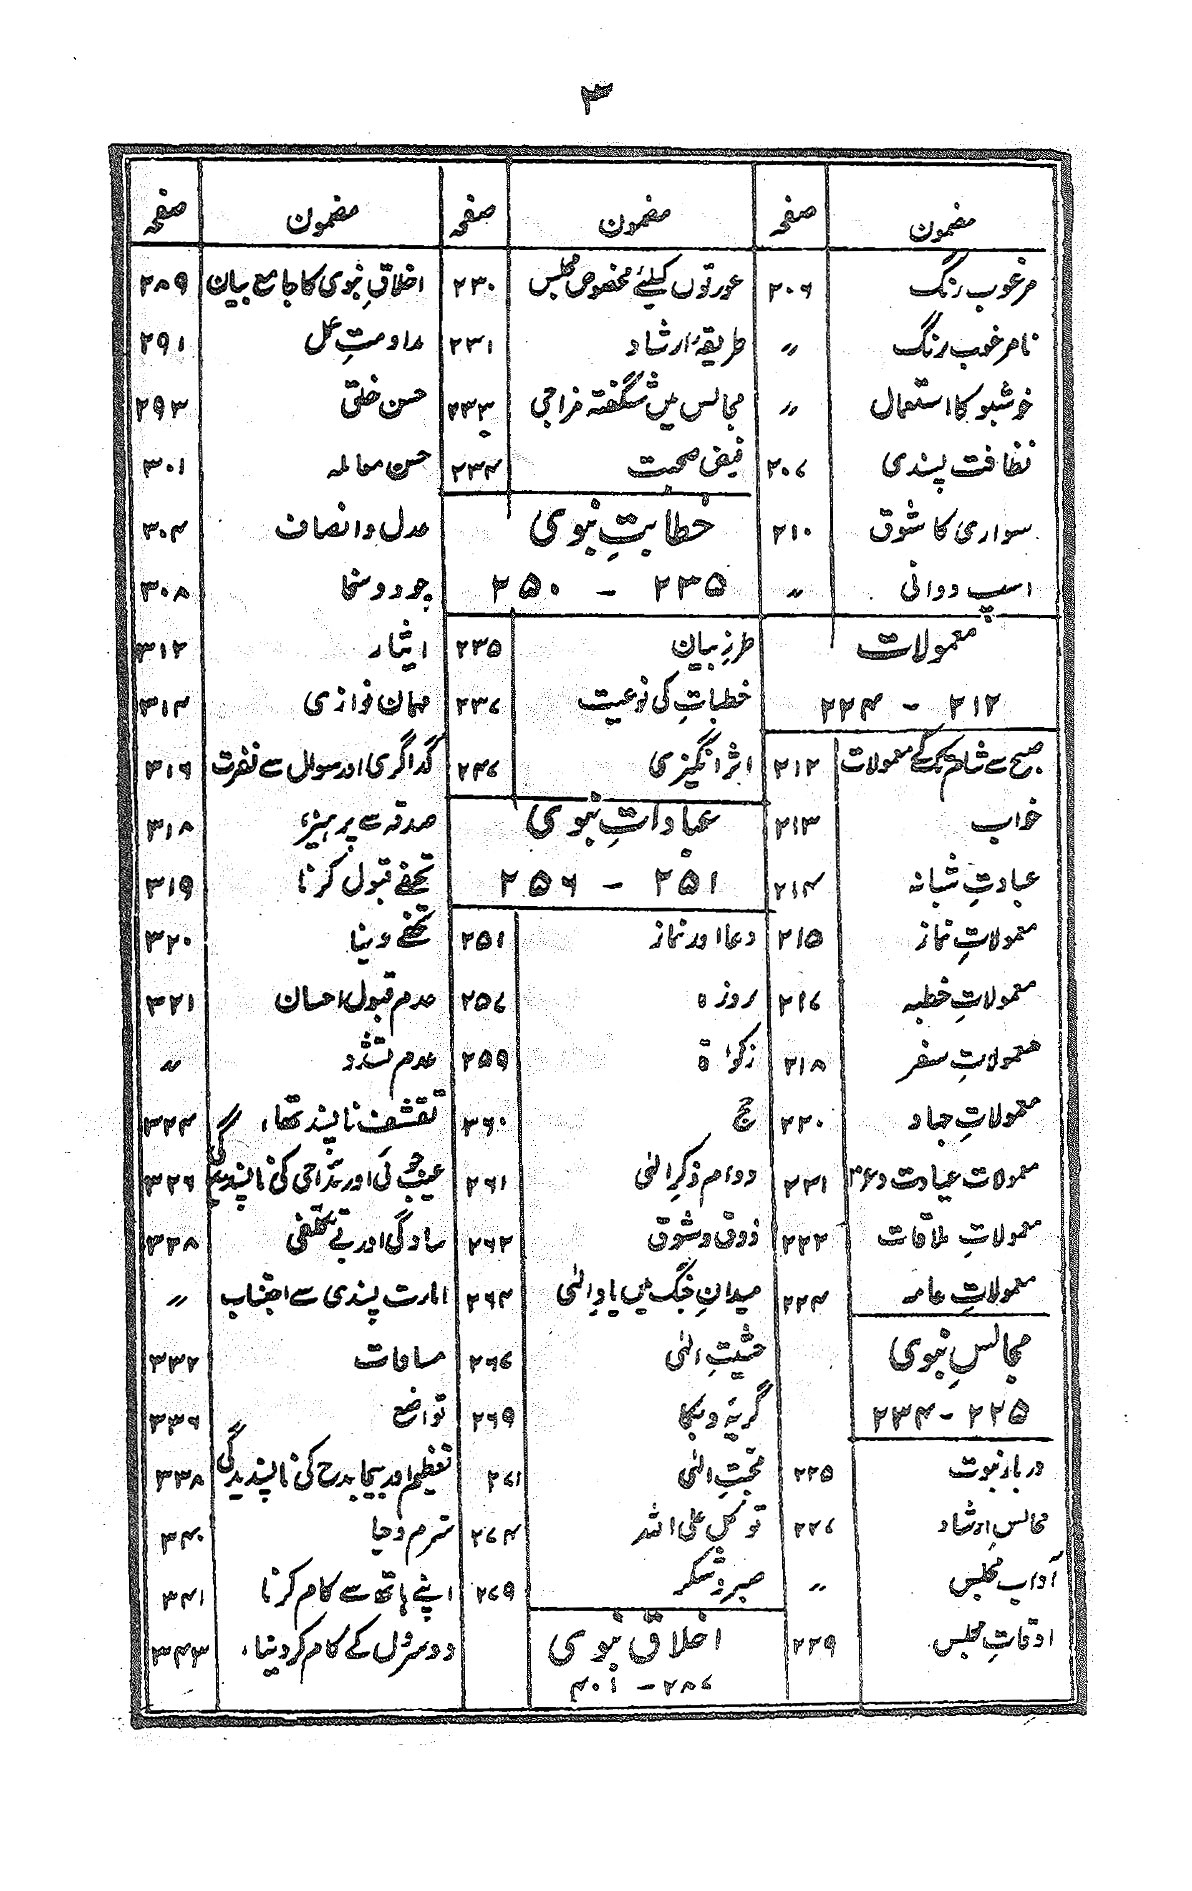 ۳
مضمون صفحہ
مرغوب رنگ ۲۰۶
نامرغوب رنگ 〃
خوشبو کا استعمال 〃
نظافت پسندی ۲۰۷
سواری کا شوق ۲۱۰
اسپ دوانی 〃
معمولات
۲۱۲ - ۲۲۴
صبح سے شام تک کے معمولات ۲۱۲
خواب ۲۱۳
عبادتِ شبانہ ۲۱۴
معمولاتِ نماز ۲۱۵
معمولاتِ خطبہ ۲۱۷
معمولاتِ سفر ۲۱۸
معمولاتِ جہاد ۲۲۰
معمولات عیادت و عزا ۲۲۱
معمولاتِ ملاقات ۲۲۲
معمولاتِ عامہ ۲۲۴
مجالسِ نبوی
۲۲۵ - ۲۳۴
دربارِ نبوت ۲۲۵
مجالسِ ارشاد ۲۲۷
آدابِ مجلس 〃
اوقاتِ مجلس ۲۲۹
مضمون صفحہ
عورتوں کیلئے مخصوص مجلس ۲۳۰
طریقۂ ارشاد ۲۳۱
مجالس میں شگفتہ مزاجی ۲۳۳
فیضِ صحبت ۲۳۴
خطابتِ نبوی
۲۳۵ - ۲۵۰
طرزِ بیان ۲۳۵
خطبات کی نوعیت ۲۳۷
اثر انگیزی ۲۴۷
عباداتِ نبوی
۲۵۱ - ۲۵۶
دعا اور نماز ۲۵۱
روزہ ۲۵۷
زکوٰۃ ۲۵۹
حج ۳۶۰
دوام ذکرِ الٰہی ۲۶۱
ذوق و شوق ۲۶۲
میدانِ جنگ میں یادِ الٰہی ۲۶۴
خشیتِ الٰہی ۲۶۷
گریہ و بکا ۲۶۹
محبتِ الٰہی ۲۷۱
توکل علی اللہ ۲۷۴
صبر و شکر ۲۷۹
اخلاقِ نبوی
۲۸۷ - ۴۰۱
مضمون صفحہ
اخلاقِ نبوی کا جامع بیان ۲۸۹
مداومتِ عمل ۲۹۱
حسن خلق ۲۹۳
حسن معاملہ ۳۰۱
عدل و انصاف ۳۰۴
جود و سخا ۳۰۸
ایثار ۳۱۲
مہمان نوازی ۳۱۴
گداگری اور سوال سے نفرت ۳۱۶
صدقہ سے پرہیز ۳۱۸
تحفے قبول کرنا ۳۱۹
تحفے دینا ۳۲۰
عدم قبول احسان ۳۲۱
عدم تشدّد 〃
تقشف ناپسند تھا، ۳۲۴
عیب جوئی اور مدّاحی کی ناپسندیدگی ۳۲۶
سادگی اور بے تکلفی ۳۲۸
امارت پسندی سے اجتناب 〃
مساوات ۳۳۲
تواضع ۳۳۶
تعظیم اور بیجا مدح کی ناپسندیدگی ۳۳۸
شرم و حیا ۳۴۰
اپنے ہاتھ سے کام کرنا ۳۴۱
دوسروں کے کام کر دینا، ۳۴۳